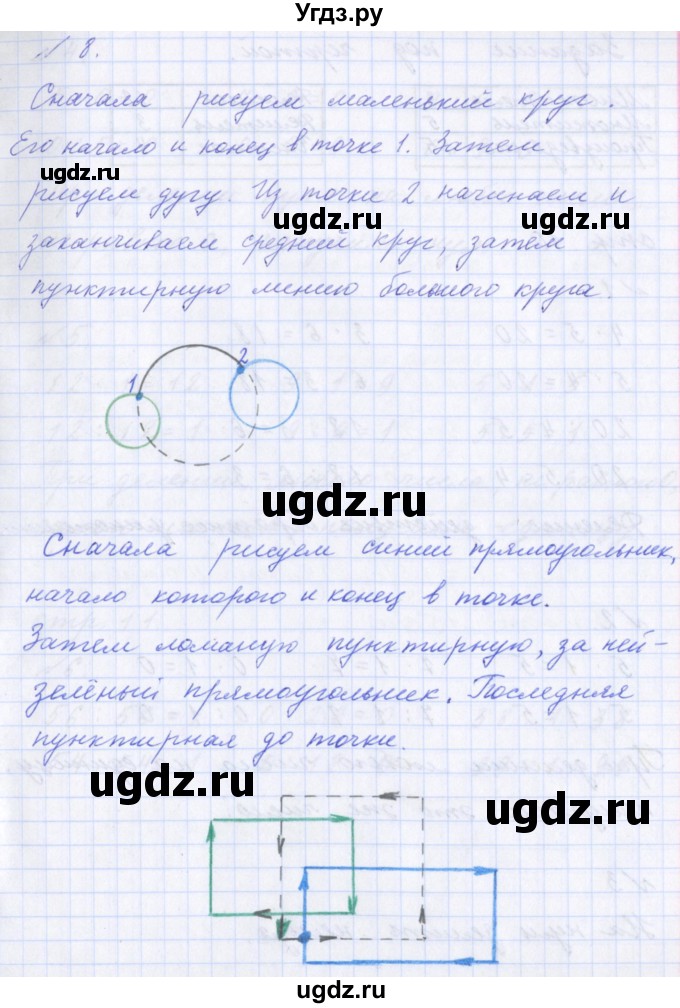 Угдз.ру
№ 8.
Сначала рисуем маленький круг.
Его начало и конец в точке 1. Затем
рисуем дугу. Из точки 2 начинаем и
заканчиваем средний круг, затем
пунктирную линию большого круга.
1 2
Сначала рисуем синий прямоугольник,
начало которого и конец в точке.
Затем ломаную пунктирную, за ней-
зелёный прямоугольник. Последняя
пунктирная до точки.
ugdz.ru
ugdz.ru
ugdz.ru
ugdz.ru
ugdz.ru
ugdz.ru
ugdz.ru
ugdz.ru
ugdz.ru